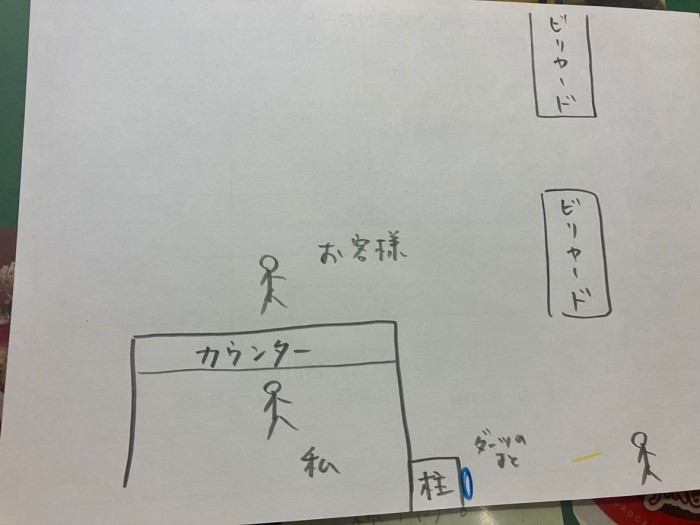 ビリヤード
ビリヤード
お客様
カウンター
私
柱
ダーツの
まと